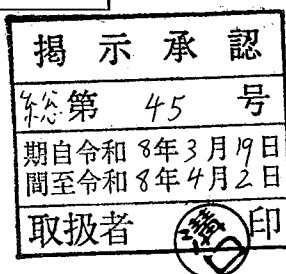 掲示承認
総第 45 号
期自令和 8年3月19日
間至令和 8年4月2日
取扱者 印